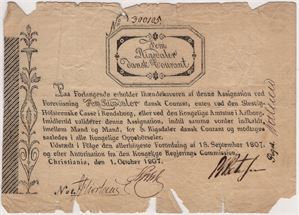 No 300105
Fem
Rigsdaler
Dansk Courant.
Paa Forlangende erholder Ihændehaveren af denne Assignation ved
Foreviisning Fem Rigsdaler dansk Courant, enten ved den Slesvig-
Holsteenske Casse i Rendsborg, eller ved den Kongelige Amtstue i Aalborg.
Imidlertid validerer denne Assignation, indtil samme vorder indkaldt,
imellem Mand og Mand, for fr. Rigsdaler dansk Courant og modtages
saaledes i alle Kongelige Oppebørseler.
Udstædt i Følge den allerhøieste Forordning af 18. September 1807.
og efter Autorisation fra den Kongelige Regjerings Commission.
Christiania, den 1. October 1807.